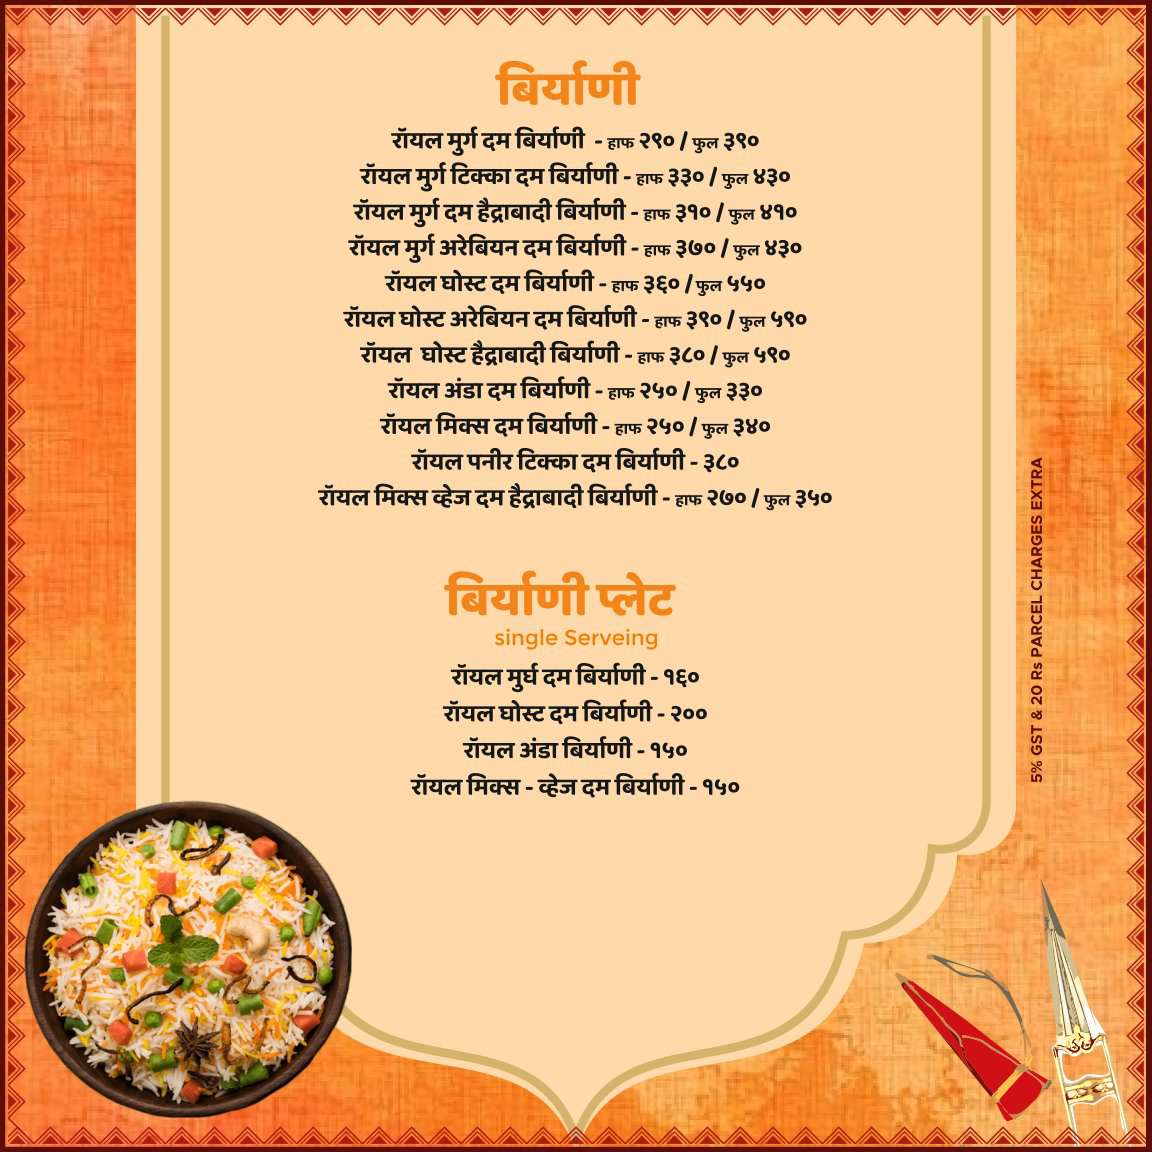 बिर्याणी
रॉयल मुर्ग दम बिर्याणी - हाफ २९० / फुल ३९०
रॉयल मुर्ग टिक्का दम बिर्याणी - हाफ ३३० / फुल ४३०
रॉयल मुर्ग दम हैद्राबादी बिर्याणी - हाफ ३१० / फुल ४१०
रॉयल मुर्ग अरेबियन दम बिर्याणी - हाफ ३७० / फुल ४३०
रॉयल घोस्ट दम बिर्याणी - हाफ ३६० / फुल ५५०
रॉयल घोस्ट अरेबियन दम बिर्याणी - हाफ ३९० / फुल ५९०
रॉयल घोस्ट हैद्राबादी बिर्याणी - हाफ ३८० / फुल ५९०
रॉयल अंडा दम बिर्याणी - हाफ २५० / फुल ३३०
रॉयल मिक्स दम बिर्याणी - हाफ २५० / फुल ३४०
रॉयल पनीर टिक्का दम बिर्याणी - ३८०
रॉयल मिक्स व्हेज दम हैद्राबादी बिर्याणी - हाफ २७० / फुल ३५०
बिर्याणी प्लेट
single Serveing
रॉयल मुर्घ दम बिर्याणी - १६०
रॉयल घोस्ट दम बिर्याणी - २००
रॉयल अंडा बिर्याणी - १५०
रॉयल मिक्स - व्हेज दम बिर्याणी - १५०
5% GST & 20 Rs PARCEL CHARGES EXTRA